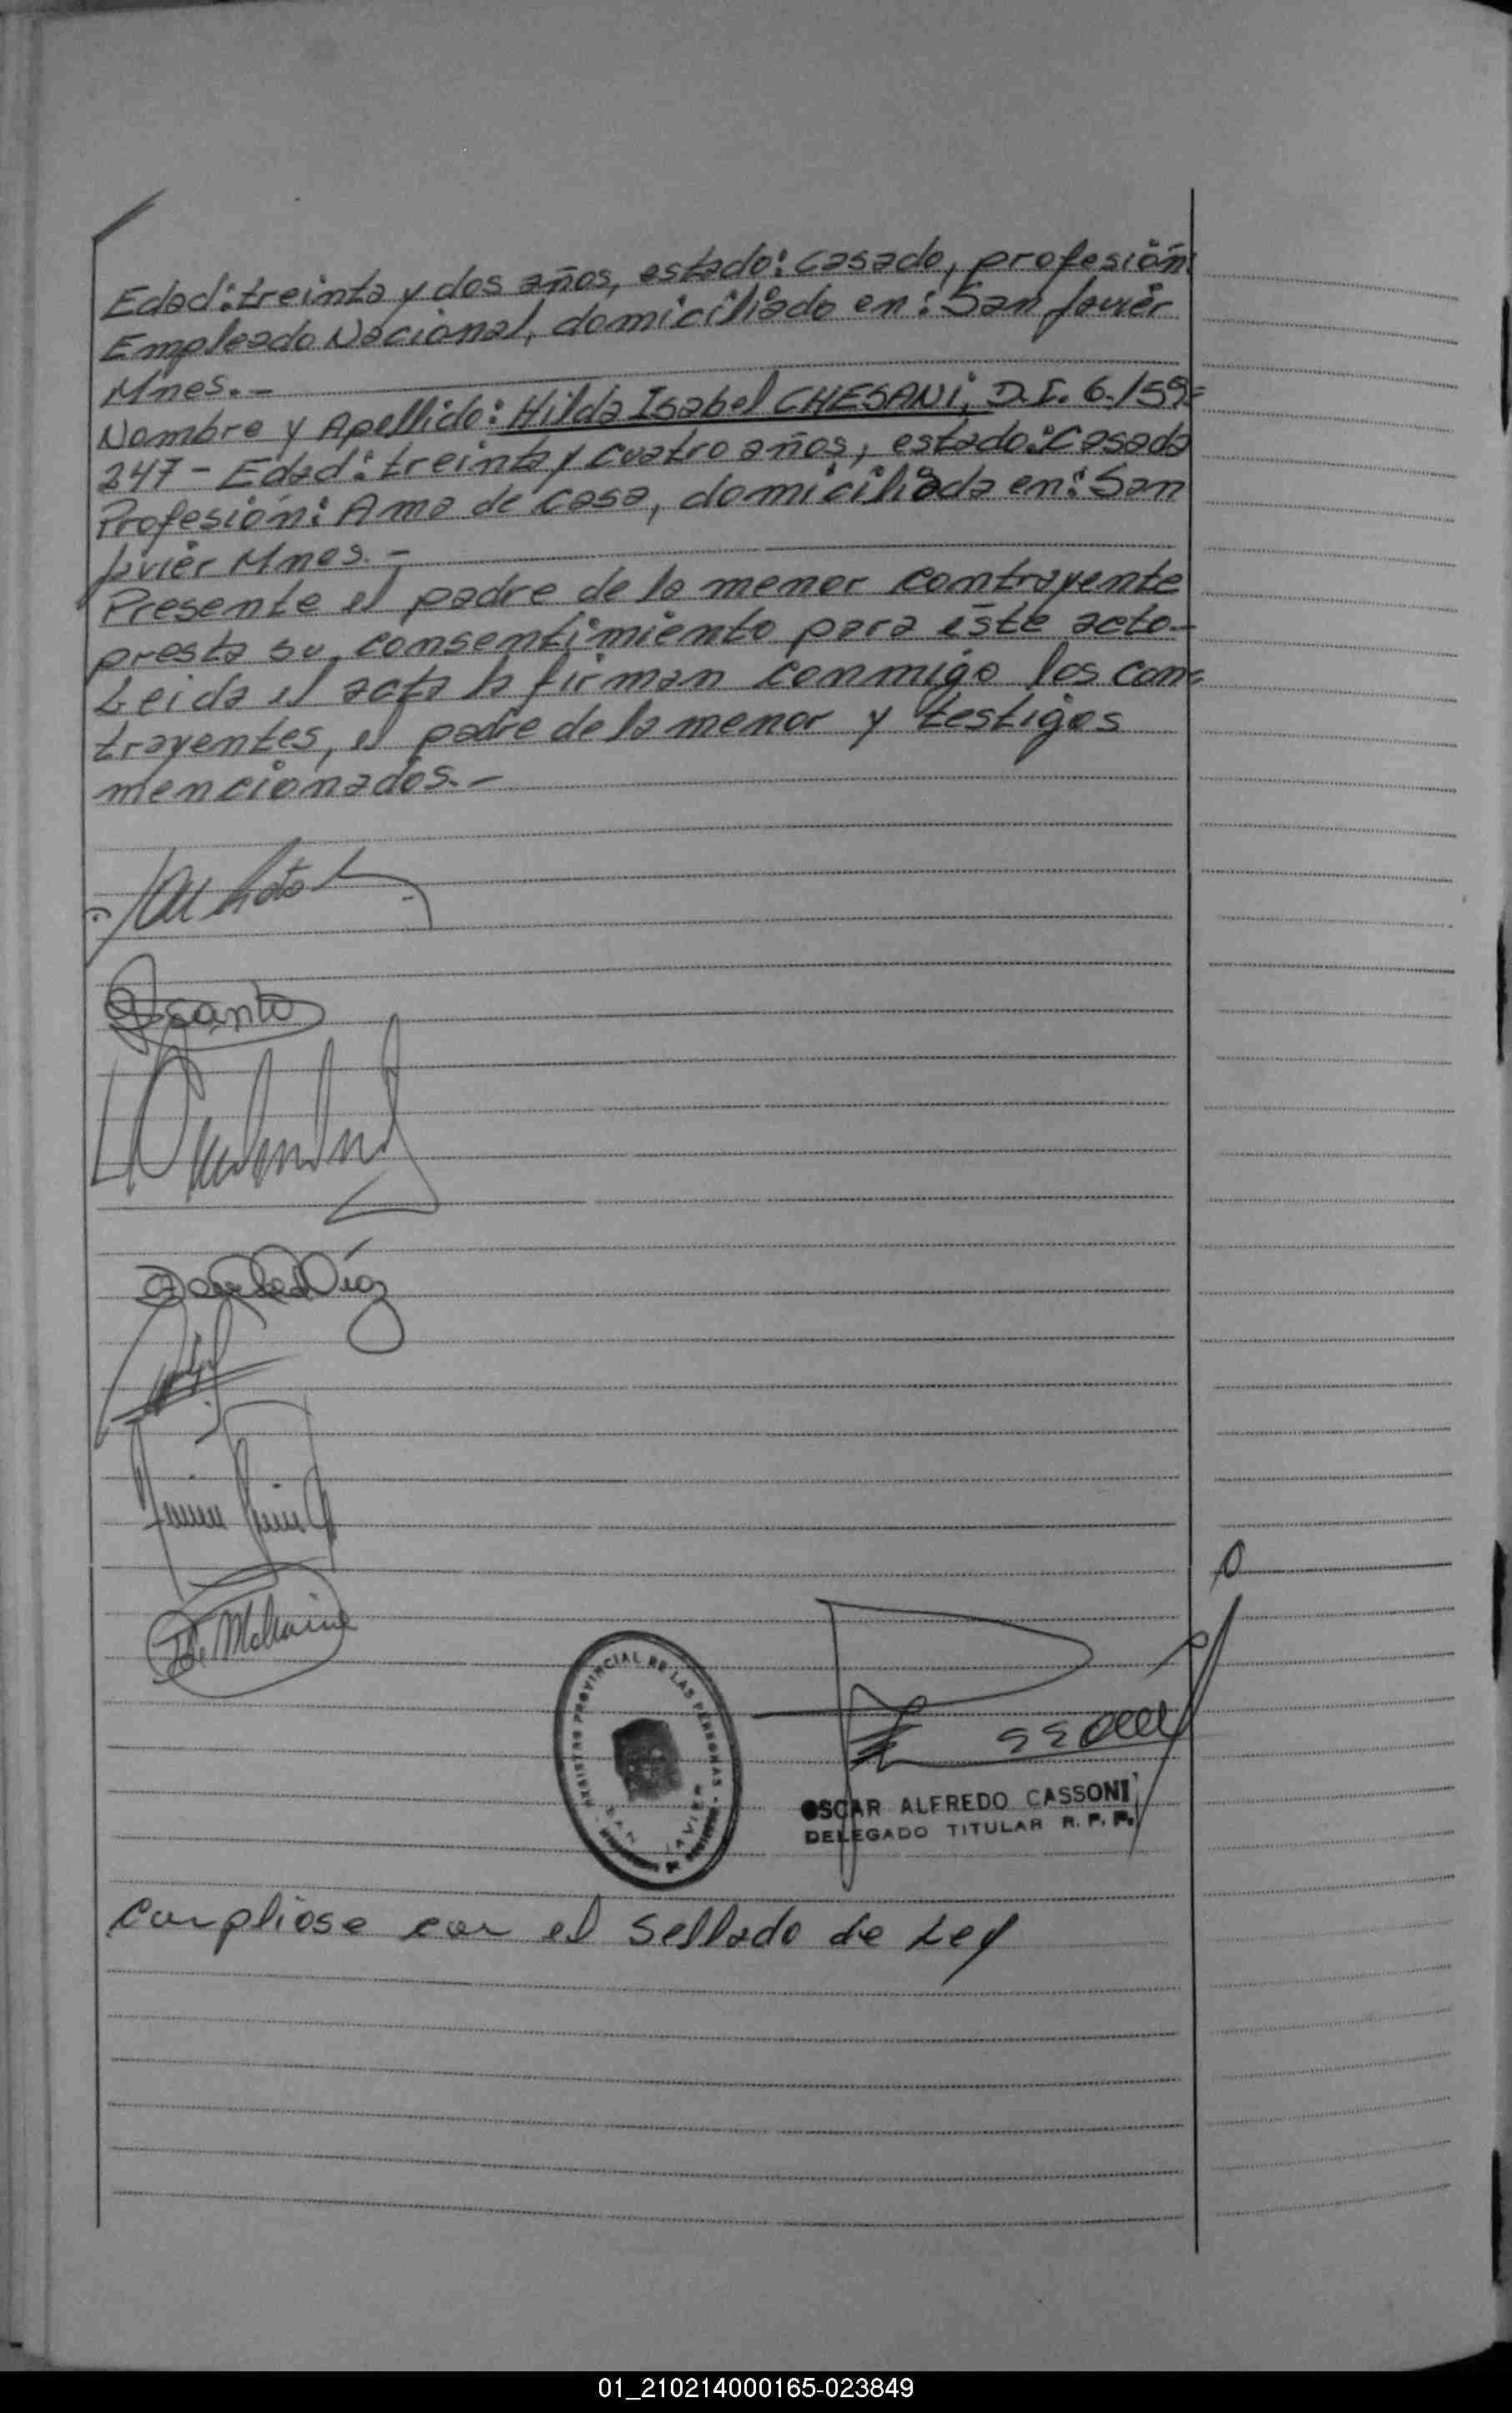 Edad: treinta y dos años, estado: casado, profesión:
Empleado Nacional, domiciliado en: San Javier
Mnes.-
Nombre y Apellido: Hilda Isabel CHESANI, D.I. 6.159-
247 - Edad: treinta y cuatro años, estado: casada
Profesión: Ama de casa, domiciliada en: San
Javier Mnes.-
Presente el padre de la menor contrayente
presta su consentimiento para éste acto-
Leida el acta la firman conmigo los con-
trayentes, el padre de la menor y testigos
mencionados.-
Díaz
REGISTRO PROVINCIAL DE LAS PERSONAS
SAN JAVIER
OSCAR ALFREDO CASSONI
DELEGADO TITULAR R. P. P.
Cumpliose con el Sellado de Ley
01_210214000165-023849